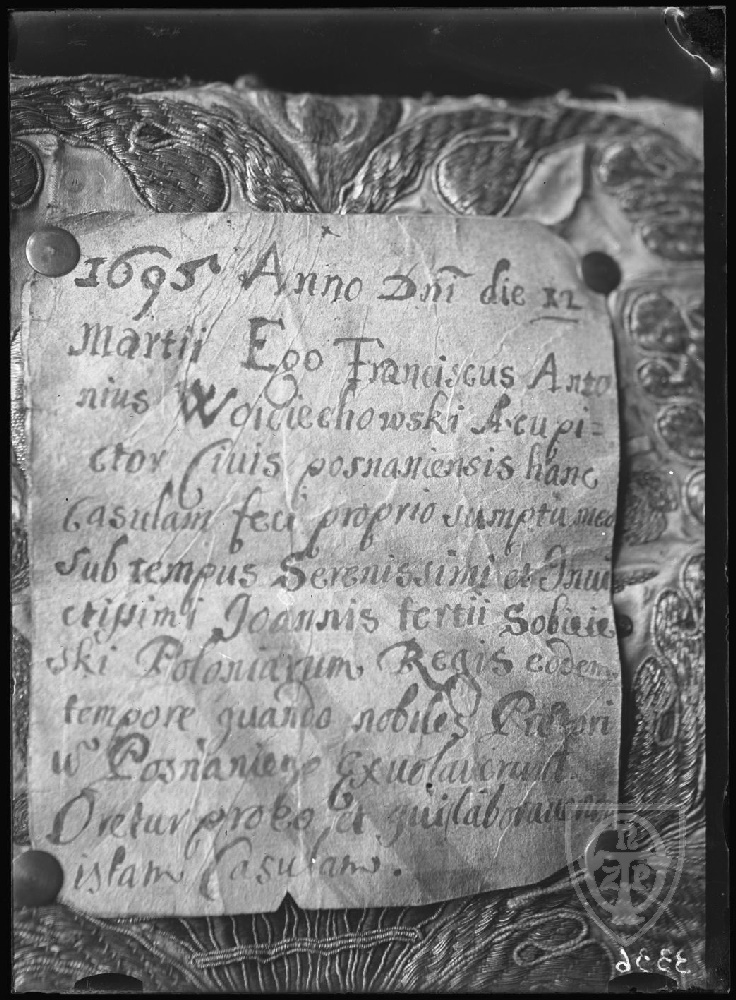 1695 Anno Dnī die 12
Martii Ego Franciscus Anto
nius Woiciechowski Acupi=
ctor Civis posnaniensis hanc
Casulam feci proprio sumptu meo
sub tempus Serenissimi et Invi
ctissimi Joannis tertii Sobieie
ski Poloniarum Regis eodem
tempore quando nobiles
Posnaniens Exvolaverunt
Oretur pro eo et qui laboraverunt
istam Casulam.
3336